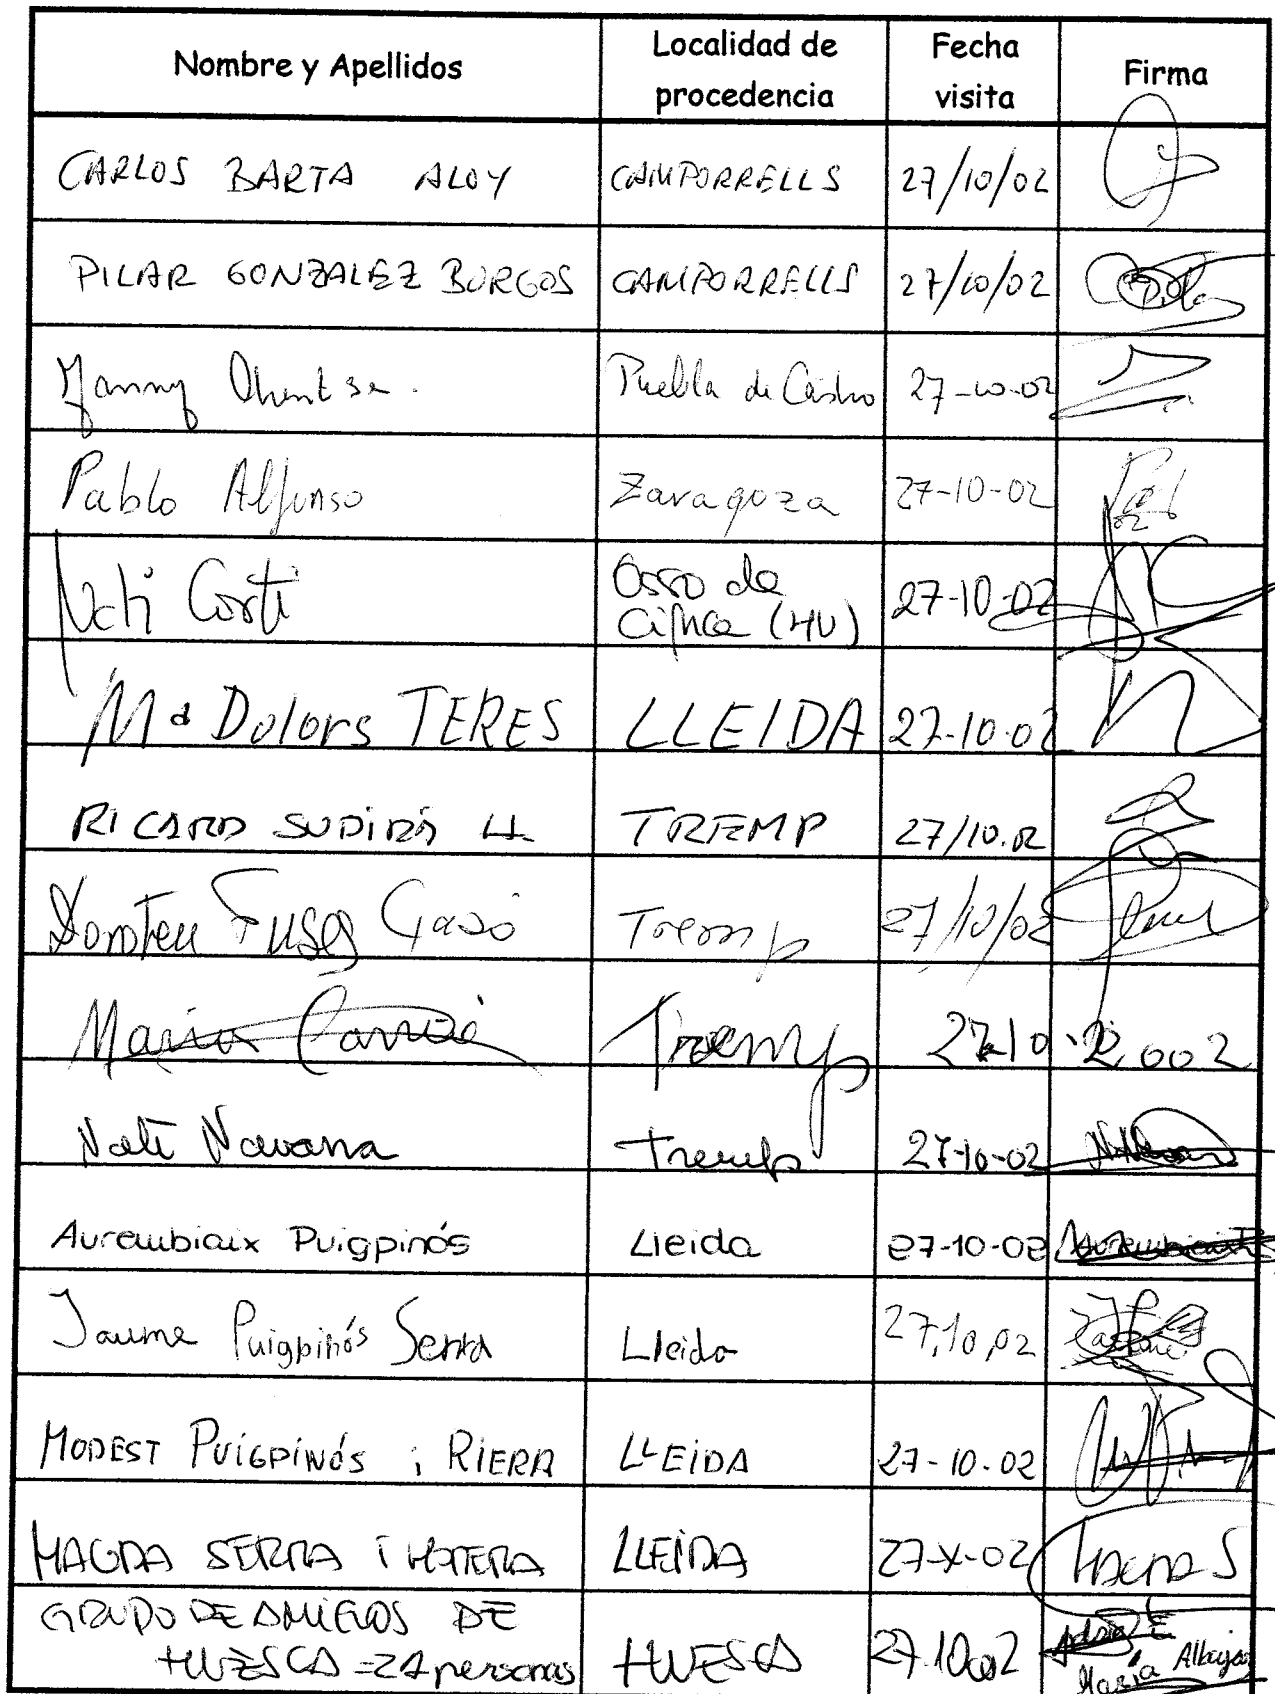 Nombre y Apellidos Localidad de procedencia Fecha visita Firma
CARLOS BARTA ALOY CAMPORRELLS 27/10/02
PILAR GONZALEZ BORGOS CAMPORRELLS 27/10/02
Puebla de Castro 27-10-02
Pablo Alfonso Zaragoza 27-10-02
Nati Corti Osso de Cinca (HU) 27-10-02
Mª Dolors TERES LLEIDA 27-10-02
RICARD LL TREMP 27/10.02
Fuses Gasó Tremp 27/10/02
Maria Tremp 27-10-2.002
Nati Navarra Tremp 27-10-02
Aurembiaix Puigpinós Lleida 27-10-02 Aurembiaix
Jaume Puigpinós Serra Lleida 27,10,02
MODEST PUIGPINÓS i RIERA LLEIDA 27-10-02
MAGDA SERRA i LLEIDA 27-X-02 MAGDA S
GRUPO DE AMIGOS DE
HUESCA =21 personas HUESCA 27.10.02 María